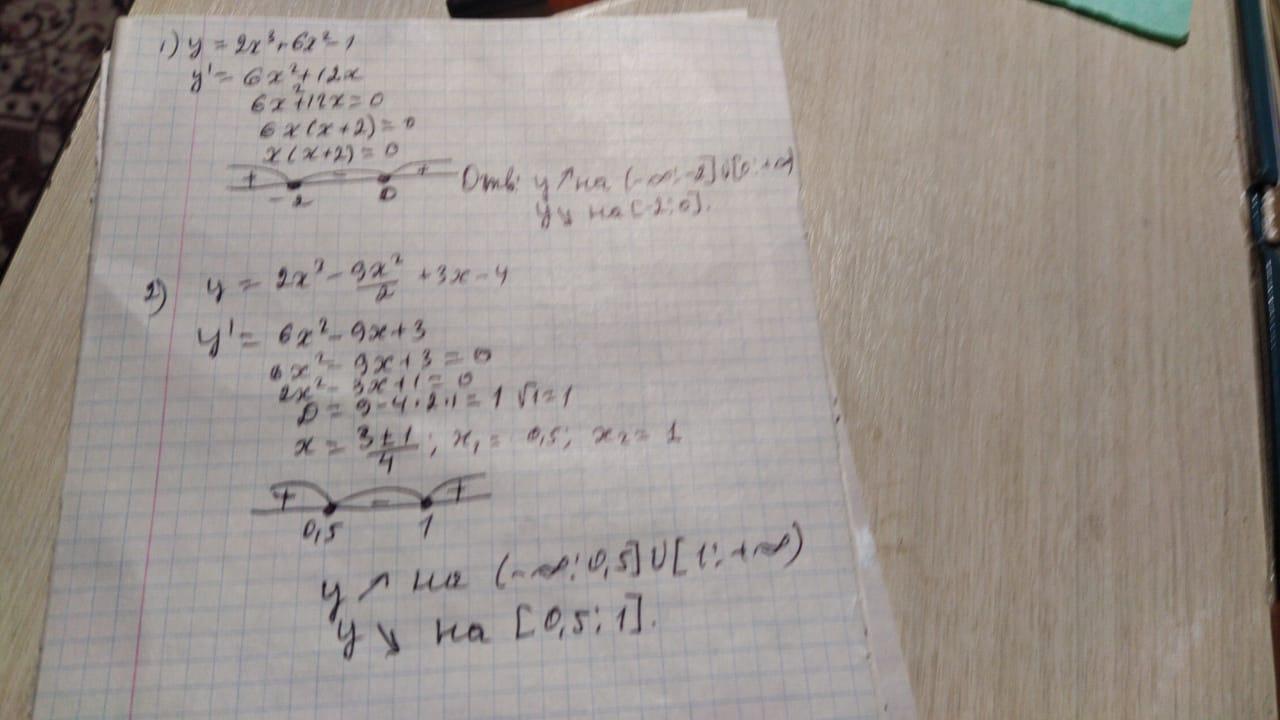 1) y = 2x³+6x²-1
y' = 6x²+12x
6x²+12x=0
6x(x+2)=0
x(x+2)=0
+ - +
-2 0
Отв: y ↗ на (-∞;-2]∪[0;+∞)
y ↘ на [-2;0].
2) y = 2x³ - 9x²/2 + 3x - 4
y' = 6x² - 9x + 3
6x² - 9x + 3 = 0
2x² - 3x + 1 = 0
D = 9-4·2·1 = 1 √1=1
x = 3±1/4 ; x₁ = 0,5; x₂ = 1
+ - +
0,5 1
y ↗ на (-∞;0,5]∪[1;+∞)
y ↘ на [0,5;1].